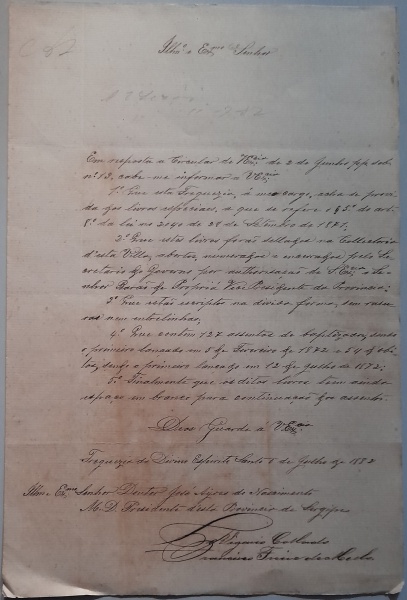 Illmo. e Exmo. Senhor
Em resposta a Circular de V.Excia de 2 de Junho pp sob
nº 13, cabe-me informar a V.Excia:
1º Que esta Freguezia, á meu cargo, acha-se provi-
da dos livros especiaes, a que se refere o § 5º do artº
8º da lei nº 2040 de 28 de Setembro de 1871.
2º Que estes livros forão sellados na Collectoria
d'esta Villa, abertos, numerados e encerrados pelo Se-
cretario do Governo por authorisação de S.Excia o Se-
nhor Barão de Propriá Vice Presidente da Provincia.
3º Que estão escriptos na divida forma, sem rasu-
ras nem entrelinhas,
4º Que contém 127 assentos de baptizados, sendo
o primeiro lançado em 5 de Fevereiro de 1872 e 54 d'obi-
tos, sendo o primeiro lançado em 12 de Julho de 1872;
5º Finalmente que os ditos livros tem ainda
espaço em branco para continuação dos assentos.
Deos Guarde a V.Excia
Freguezia do Divino Espirito Santo 8 de Julho de 1882
Illmo e Exmo Senhor Doutor José Ayres do Nascimento
M.D. Presidente d'esta Provincia de Sergipe
O Vigario Collado
Francisco